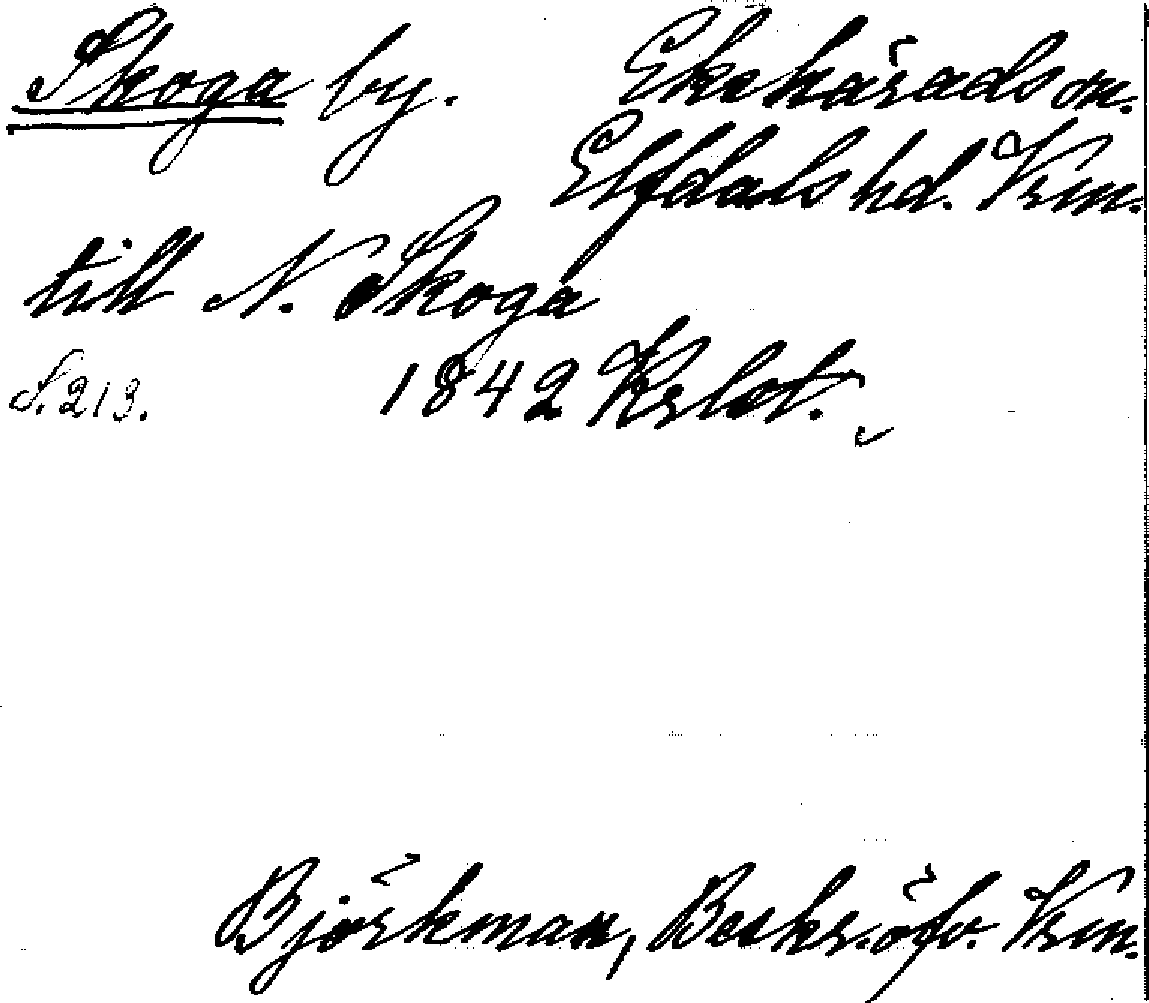 Skoga by. Ekshärads sn.
Elfdals hd. Vrm.
till N. Skoga
S. 213. 1842 Krslot.
Björkman, Beskr. öfv. Vrm.